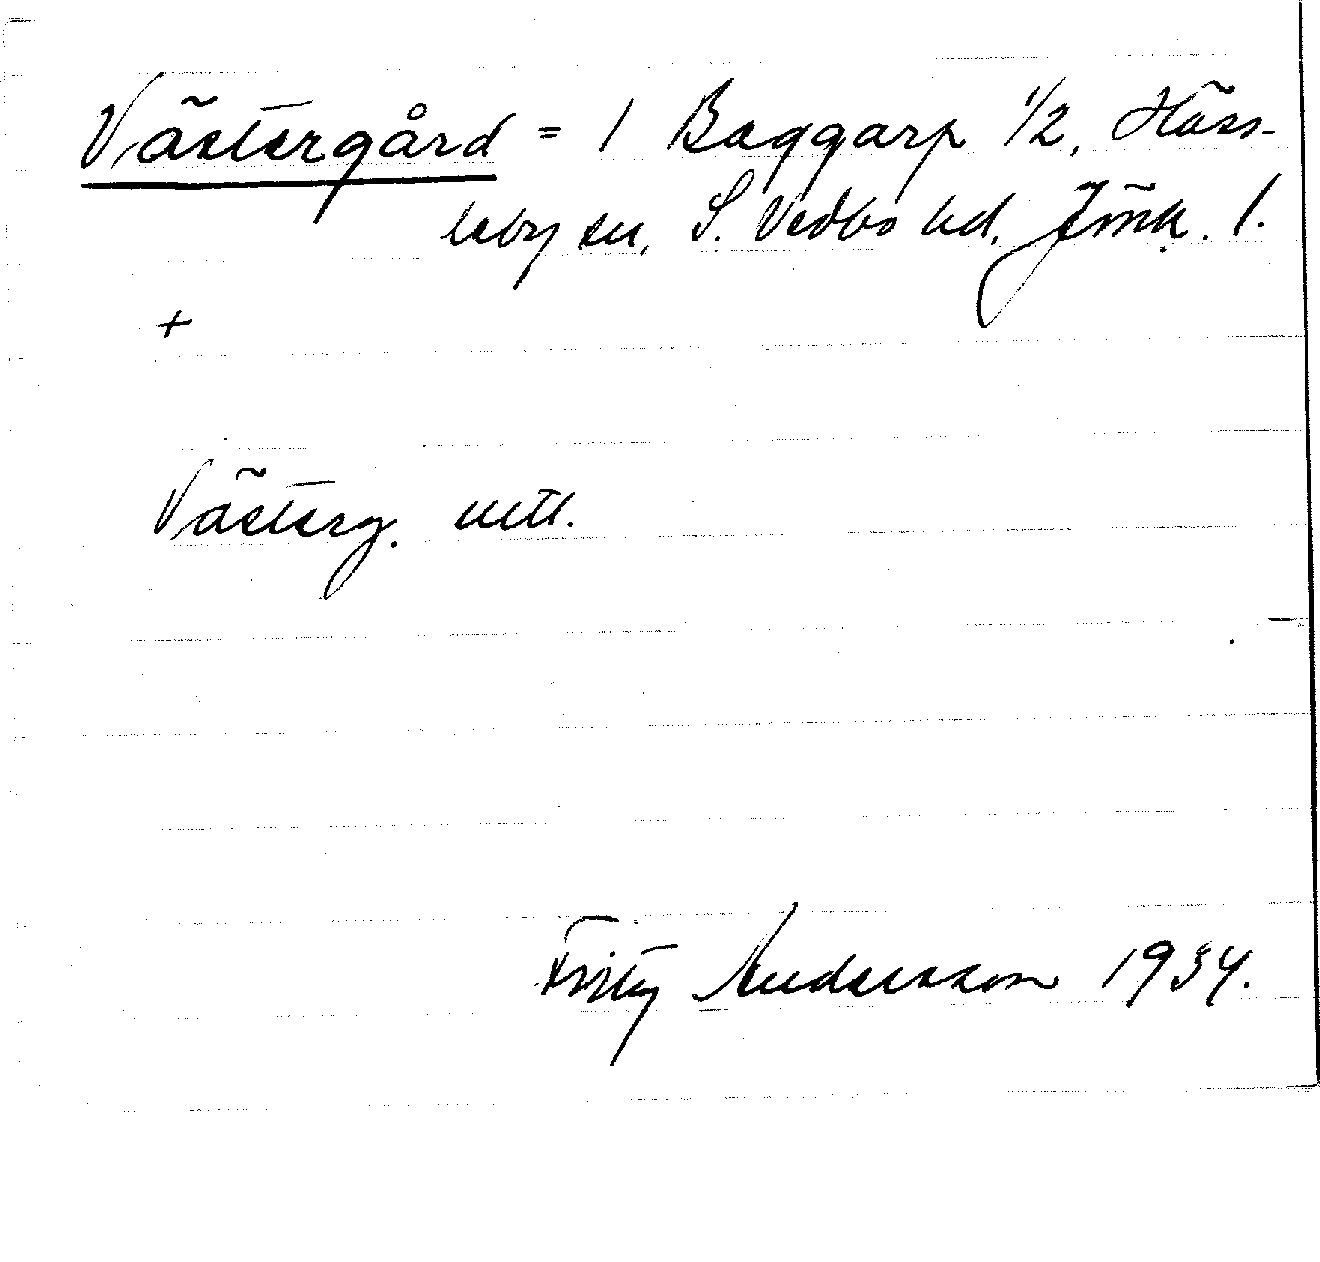 Västergård = 1 Baggarp 1/2, Häss-
leby sn, S. Vedbo hd, Jönk. l.
+
Västerg. mtl.
Fritz Andersson 1934.